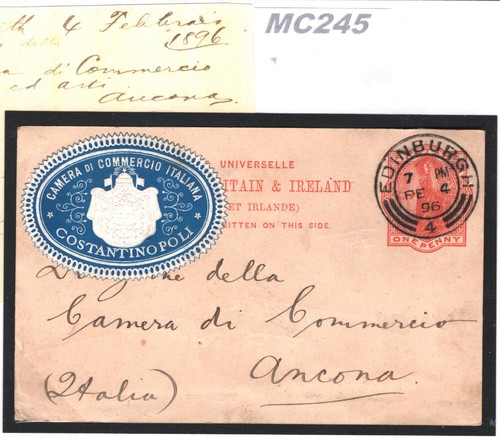 4 Febbraio
1896
della
di Commercio
ed arti
Ancona
MC245
CAMERA DI COMMERCIO ITALIANA
COSTANTINOPOLI
UNIVERSELLE
ITAIN & IRELAND
ET IRLANDE)
ITTEN ON THIS SIDE.
EDINBURGH
7 PM
FE 4
96
4
ONE PENNY
della
Camera di Commercio
Ancona
(Italia)